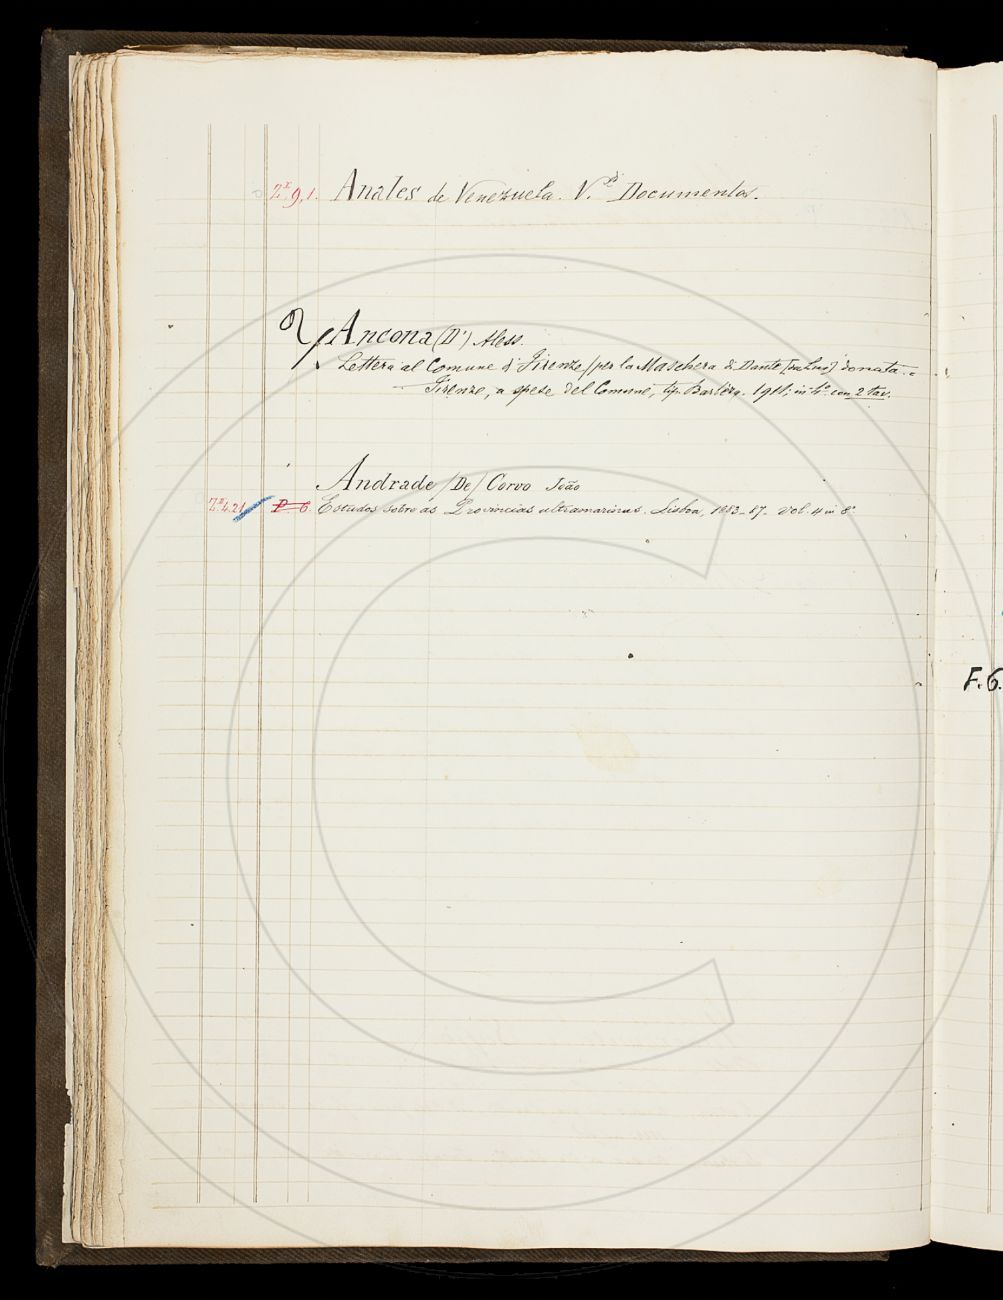 Zx 9,1. Anales de Venezuela. V.di Documentos.
Ancona (D') Aless.
Lettera al Comune di Firenze (per la Maschera di Dante donata
Firenze, a spese del Comune, tip. Barbèra. 1911; in 4º con 2 tav.
Andrade (De) Corvo João
Zx 4.21 P. 6. Estudos sobre as Provincias ultramarinas. Lisboa, 1883-87. Vol. 4 in 8º
F. 6.